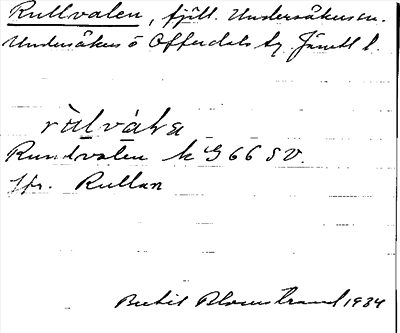 Rullvalen, fjäll. Undersåkers sn.
Undersåkers o Offerdals tg. Jämtl l.
ròlvàła
Rundvalen k G 66 SV.
Jfr. Rullan
Bertil Blomstrand 1934